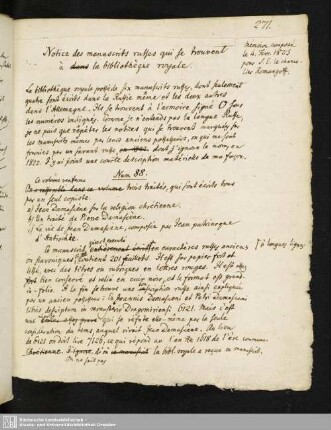 271.
Notice des manuscrits russes qui se trouvent
à dans la bibliothèque royale.
mémoire composé
le 4. Fevr. 1823
pour S. E. le chance-
lier Romanzoff.
La bibliothèque royale possède six manuscrits russes, dont seulement
quatre sont écrits dans la Russie même et les deux autres
dans l'Allemagne. Ils se trouvent à l'armoire signé O sous
les numéros indiqués. Comme je n'entends pas la langue Russe,
je ne puis que répéter les notices qui se trouvent
les manuscrits mêmes par leurs anciens possesseurs, ou qui ne sont
fournies par un savant russe dont j'ignore le nom, en
1822. J'y ai joint une courte description matérielle de ma façon.
Num 88.
Ce volume contient
trois traités, qui sont écrits tous
par un seul copiste:
a) Jean Damascène sur la religion chrétienne.
b) Un traité de Pierre Damascène.
c) La vie de Jean Damascène, composée par Jean patriarque
d'Antioche.
Ce manuscrit caractères russes anciens
ou slavoniques, contient 201 feuillets. Il est sur papier fort et
lisse, avec des titres en rubriques en lettres rouges. Il est assez
bien conservé et relié en cuir noir, et le format est grand
in-folio. À la fin se trouve une inscription russe ainsi expliquée
par un ancien possesseur: Joannis Damasceni et Petri Damasceni
libri descriptum in monasterio 7121. Mais c'est
une qui se réfute elle-même par la seule
considération du tems, auquel vivait Jean Damascène. Au lieu
de 7121 on doit lire 7126, ce qui répond au l'an de 1618 de l'ère commune
chrétienne. la bibl. royale a reçu ce manuscrit.
On ne sait pas